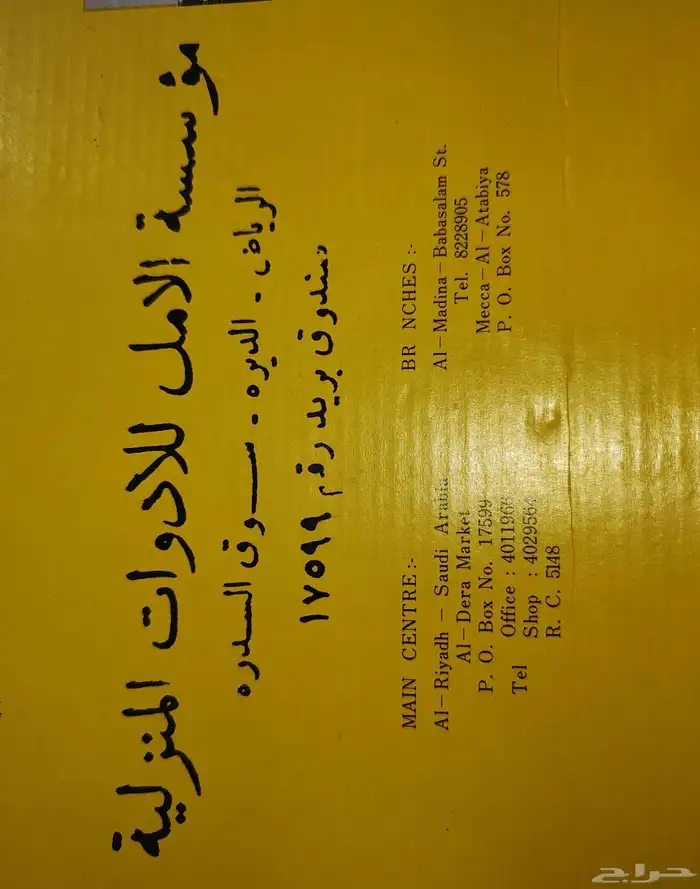 مؤسسة الامل للادوات المنزلية
الرياض - الديره - سوق السدره
صندوق بريد رقم
١٧٥٩٩
MAIN CENTRE:-
Al-Riyadh - Saudi Arabia
Al-Dera Market
P. O. Box No. 17599
Office :
Tel
Shop : 4029564
R. C. 5148
BR NCHES :-
Al-Madina-Babasalam St.
Tel. 8228905
Mecca-Al-Atabiya
P. O. Box No. 578
حراج